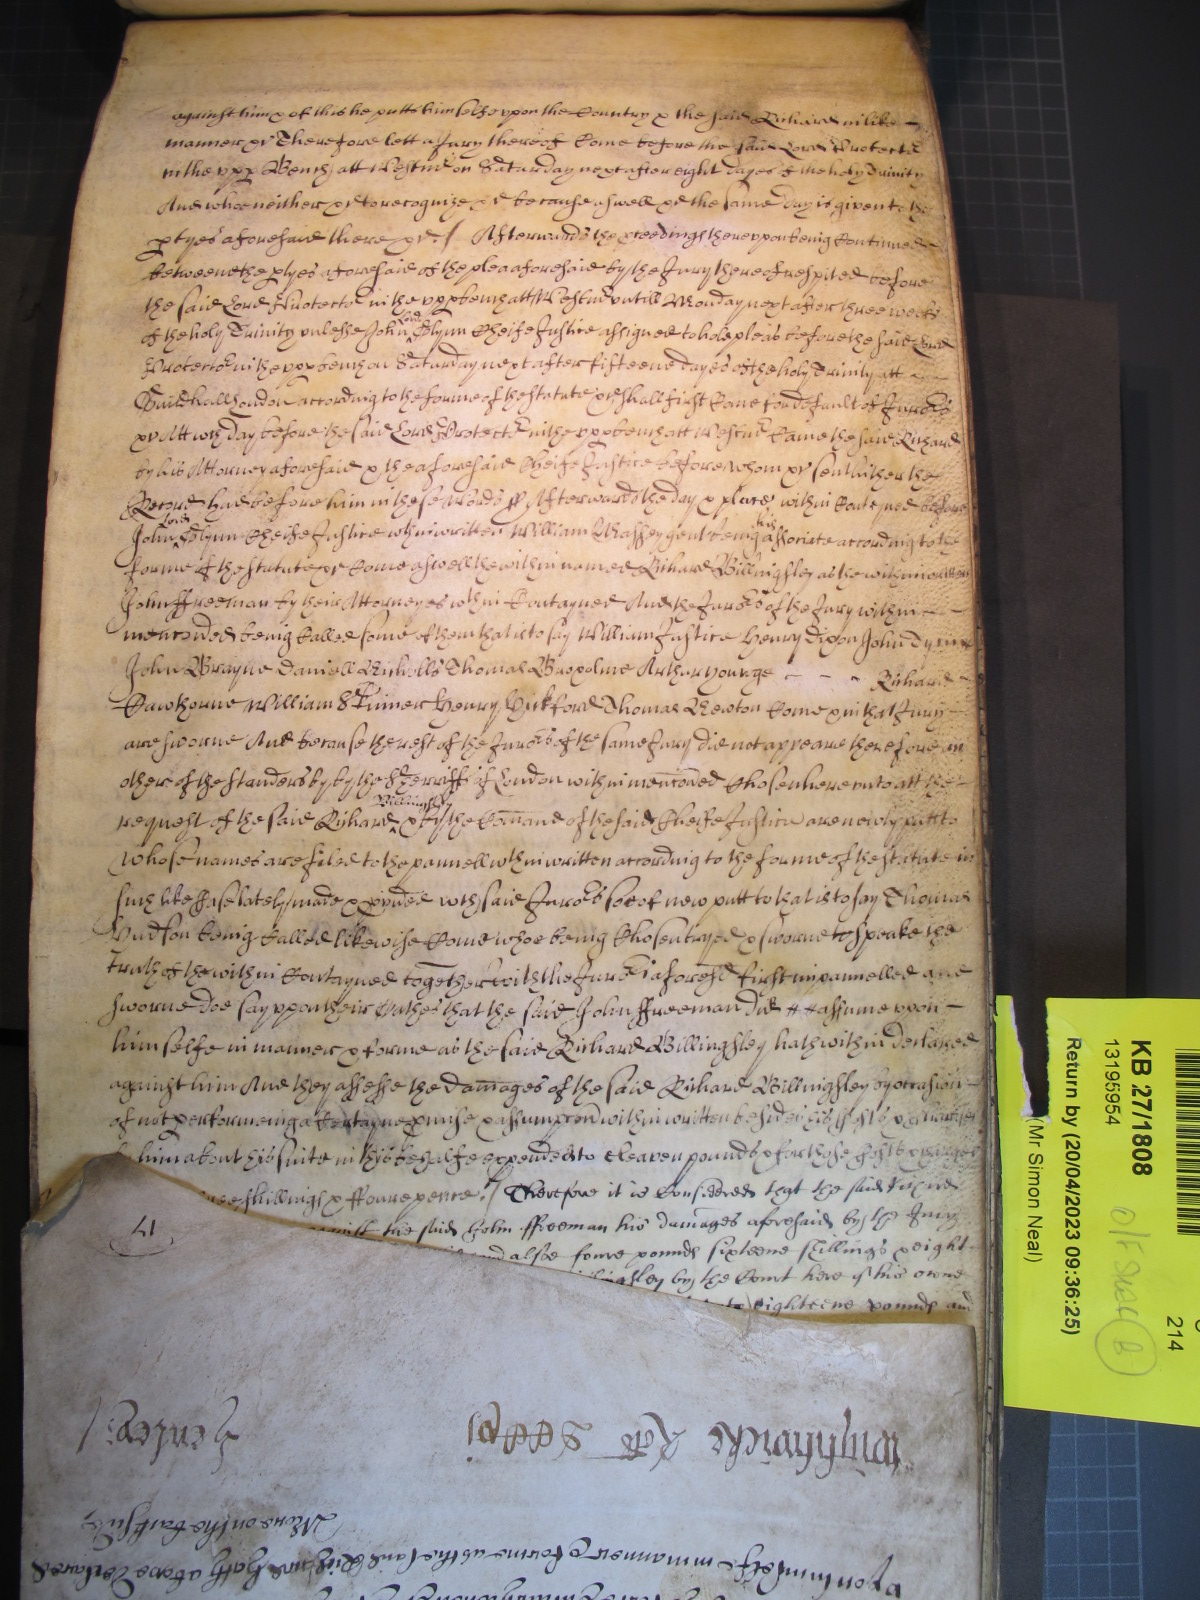 against him & of this he putts himselfe upon the Country & the said Richard in like
manner &c Therefore lett a Jury thereof Come before the said Lord Protector
in the upp Bench att Westm on Saturday next after eight dayes of the holy Trinity
And who neither &c to recognize &c because aswell &c the same day is given to the
ptyes aforesaid there &c / Afterwards the pceedings thereupon being Continued
betweene the ptyes aforesaid of the plea aforesaid by the Jury thereof respited before
the said Lord Protector in the upp bench att Westm untill Monday next after three weeks
of the holy Trinity unlesse John Glynn Cheife Justice assigned to hold pleas before the said Lord
Protector in the upp bench on Saturday next after fifteene dayes of the holy Trinity att
Guildhall London according to the forme of the statute &c shall first Come for default of Jurors
&c Att wch day before the said Lord Protector in the upp bench att Westm Came the said Richard
by his Attorney aforesaid & the aforesaid Cheife Justice before whom &c sent hither the
Record had before him in these Words ss Afterwards the day & place within Contayned before
John Lord Glynn Cheife Justice wthin written William Massey gent being his associate according to the
forme of the statute &c Come aswell the within named Richard Billingsley as the within written
John Freeman by their Attorneyes wthin Contayned And the Jurors of the Jury within
menconed being Called some of them that is to say William Justice Henry Dixon John Dymes
John Brayne Daniell Nicholls Thomas Bropolme Arthur Younge - - - Richard
Hawthorne William Skinner Henry Pickford Thomas Newton Come & in that Jury
are sworne And because the rest of the Jurors of the same Jury did not appeare therefore an
other of the standers by by the Sherriffs of London within menconed Chosen hereunto att the
request of the said Richard Billingsley & by the Comand of the said Cheife Justice are newly putt to
whose names are filed to the pannell wthin written according to the forme of the statute in
such like Case lately made & pvided wch said Jurors soe of new putt to that is to say Thomas
Hudson being Called likewise Come who being Chosen tryed & sworne to speake the
truth of the within Contayned together with the Jurors aforesd first impannelled and
sworne doe say uppon their Oathes that the said John Freeman did assume uppon
himselfe in manner & forme as the said Richard Billingsley hath within declared
against him And they assesse the damages of the said Richard Billingsley by occasion
of not performeinge Certayne pmise & assumpcon within written besides his Costs & Charges
by him about his suite in this behalfe expended to eleaven pounds & for those Costs & Charges
shillings & ffoure pence / Therefore it is Considered that the said Richard
against the said John ffreeman his damages aforesaid by the Jury
and alsoe foure pounds sixteene shillings & eight
Billingsley by the Court here of his owne
to eighteene pounds and
17
Wightwicke
Henley
More on the backside
upon himselfe in manner & forme as the said Richard hath above declared
KB 27/1808
13195954
Return by (20/04/2023 09:36:25)
(Mr Simon Neal)
214